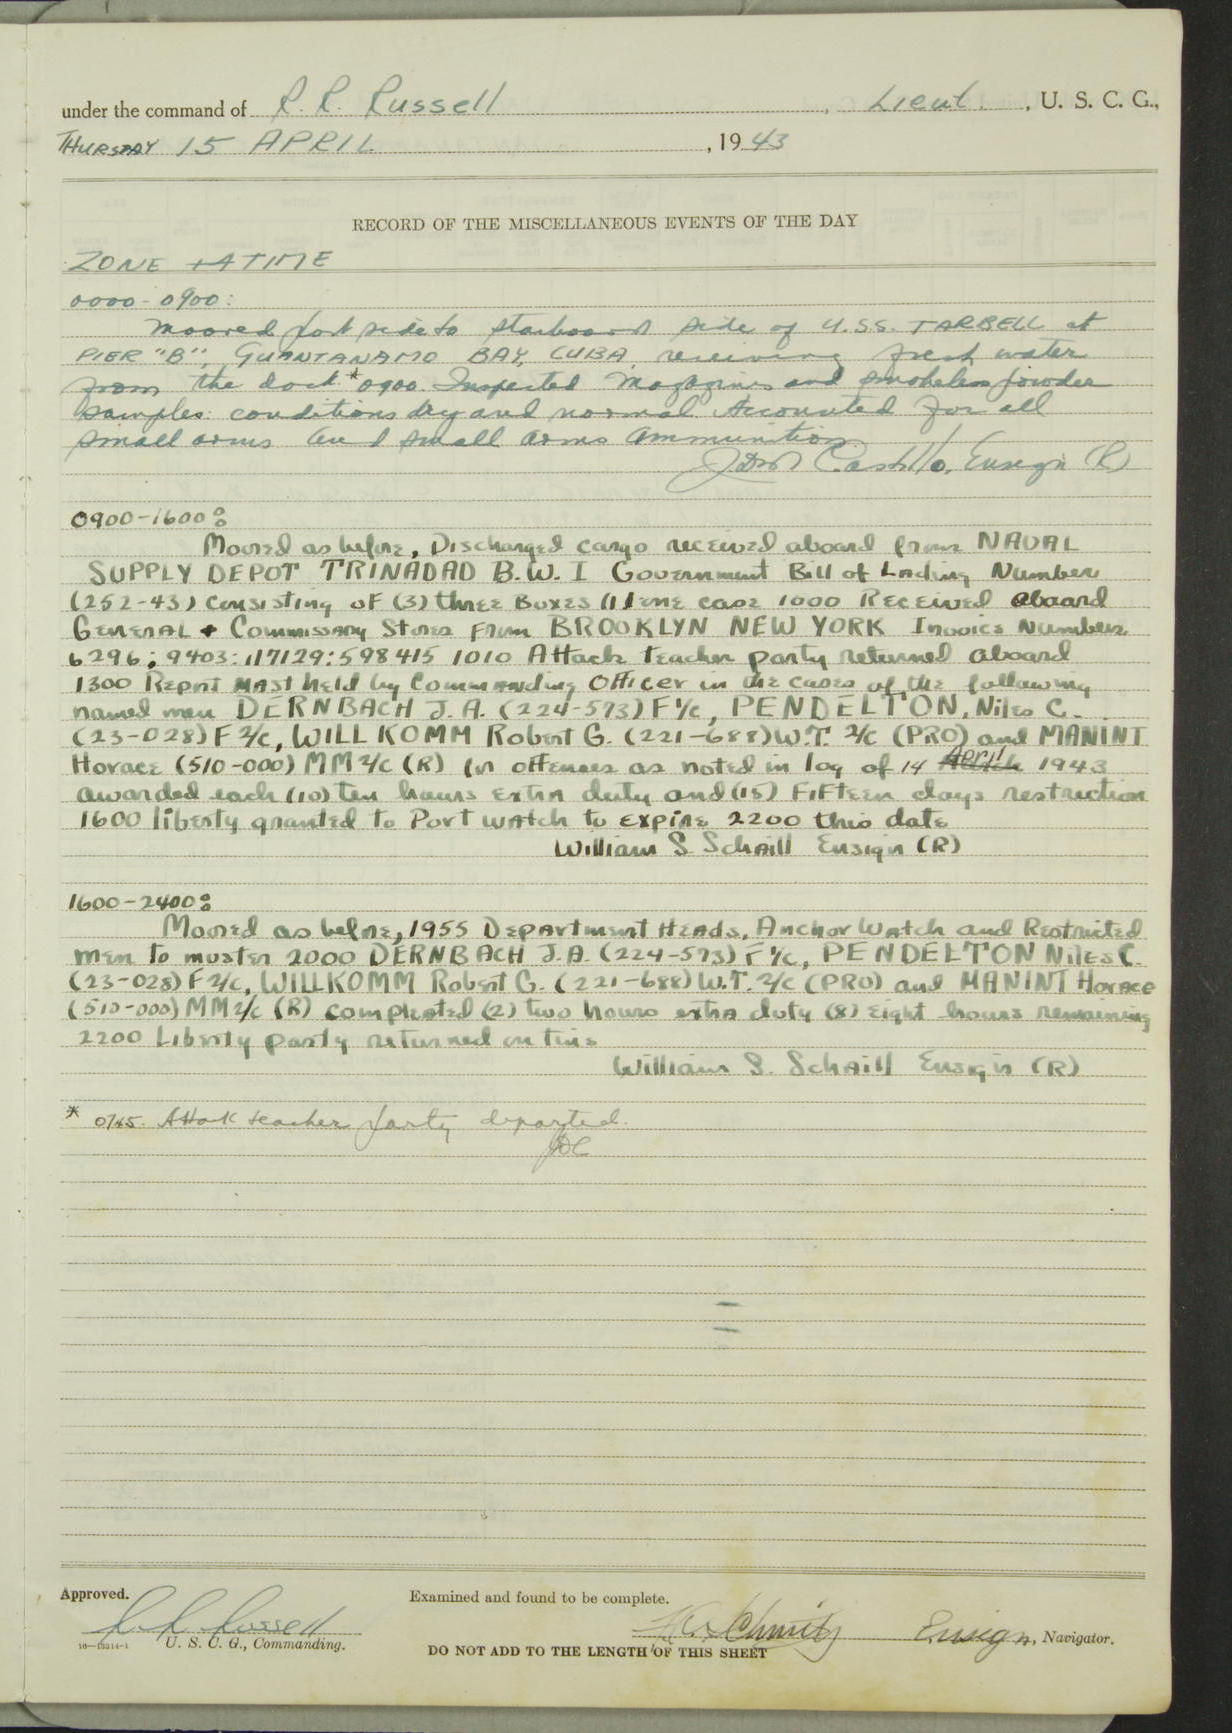 under the command of R. R. Russell, Lieut., U. S. C. G.,
THURSDAY 15 APRIL, 1943
RECORD OF THE MISCELLANEOUS EVENTS OF THE DAY
ZONE +4 TIME
0000-0900:
Moored port side to starboard side of U.S.S. TARBELL at
PIER "B", GUANTANAMO BAY, CUBA, receiving fresh water
from the dock * 0900. Inspected Magazines and smokeless powder
samples: conditions dry and normal Accounted for all
small arms and small arms ammunition
Castillo, Ensign (R)
0900-1600:
Moored as before, Discharged cargo received aboard from NAVAL
SUPPLY DEPOT TRINADAD B.W.I Government Bill of Lading Number
(252-43) consisting of (3) three Boxes (1) one case 1000 Received aboard
General + Commissary Stores from BROOKLYN NEW YORK Invoice Numbers
6296; 9403: 117129: 598415 1010 Attack teacher party returned aboard
1300 Report mast held by Commanding Officer in the cases of the following
named men DERNBACH J.A. (224-573) F 1/c, PENDELTON, Niles C.
(23-028) F 2/c, WILLKOMM Robert G. (221-688) W.T. 2/c (PRO) and MANINT
Horace (510-000) MM 2/c (R) for offenses as noted in log of 14 April 1943
awarded each (10) ten hours extra duty and (15) Fifteen days restriction
1600 liberty granted to Port watch to expire 2200 this date
William S. Schaill Ensign (R)
1600-2400:
Moored as before, 1955 Department Heads, Anchor Watch and Restricted
men to muster 2000 DERNBACH J.A. (224-573) F 1/c, PENDELTON Niles C.
(23-028) F 2/c, WILLKOMM Robert G. (221-688) W.T. 2/c (PRO) and MANINT Horace
(510-000) MM 2/c (R) completed (2) two hours extra duty (8) eight hours remaining
2200 Liberty party returned on time
William S. Schaill Ensign (R)
* 0745. Attack teacher party departed.
JDC
Approved. Examined and found to be complete.
R R Russell Schmitz Ensign, Navigator.
U. S. C. G., Commanding.
DO NOT ADD TO THE LENGTH OF THIS SHEET